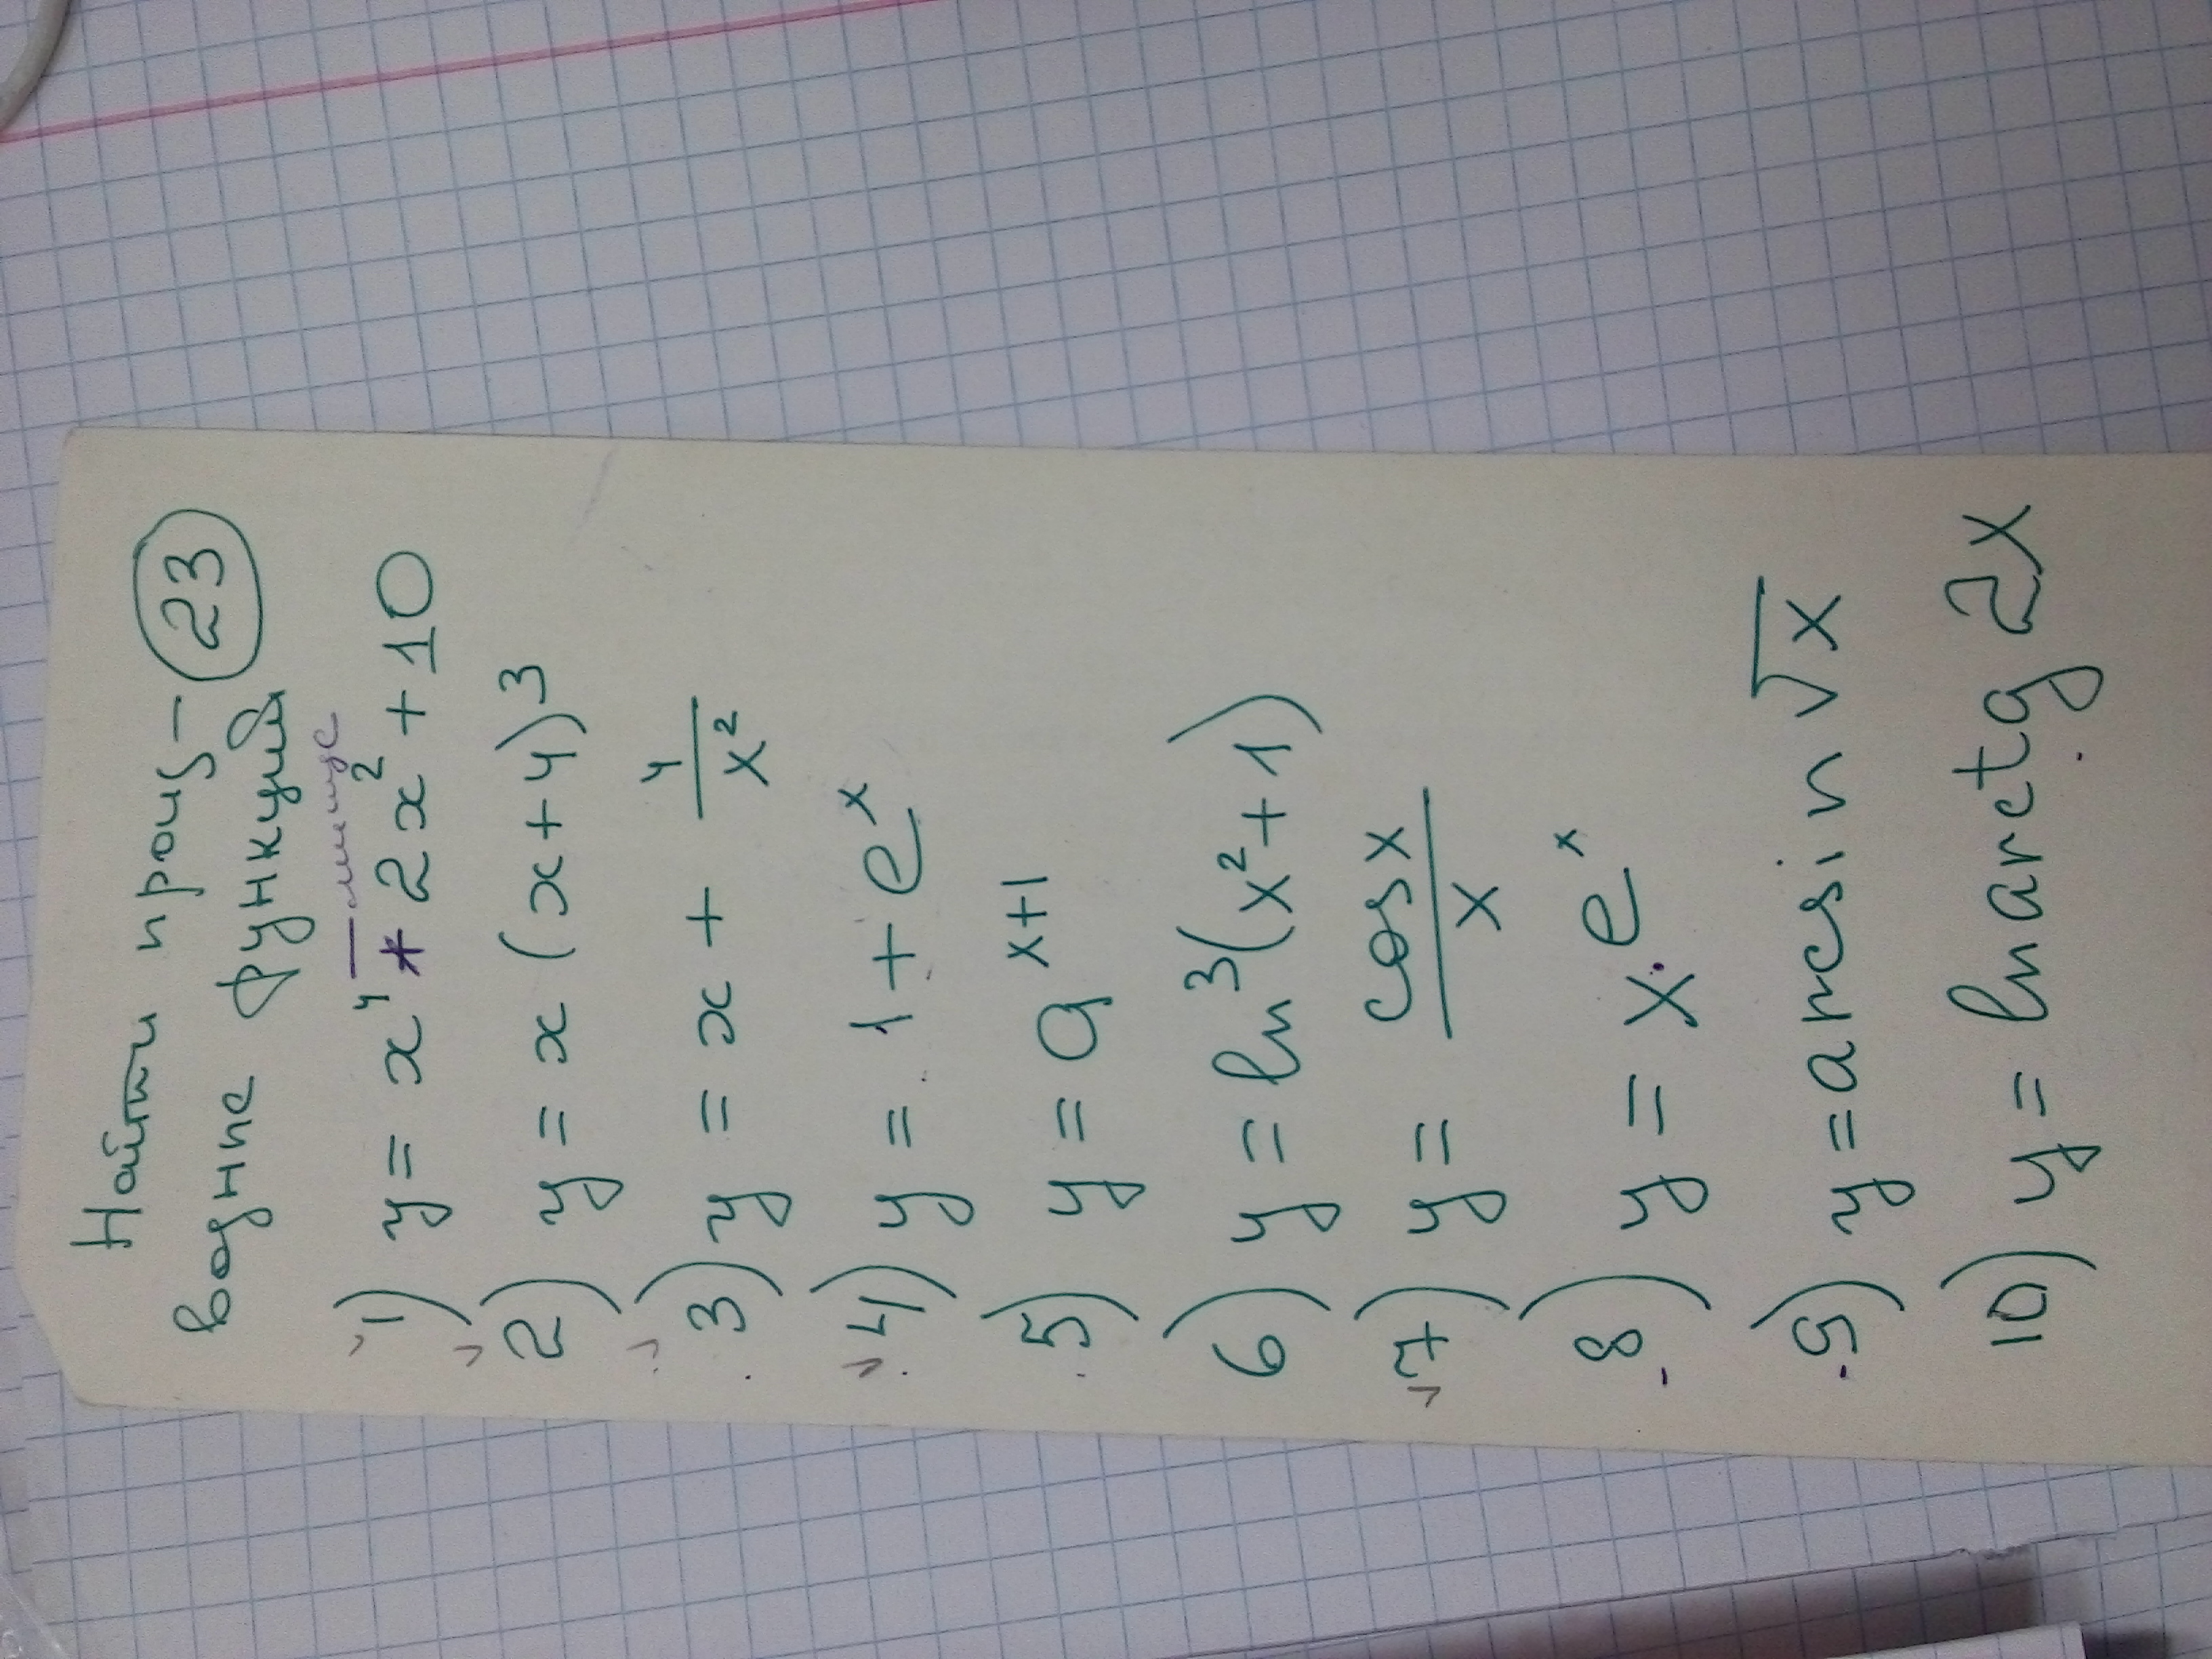 Найти произ- 23
водные функций
— минус
1) y = x⁴ - 2x² + 10
2) y = x (x+4)³
3) y = x + 4/x²
4) y = 1 + e^x
5) y = a^x+1
6) y = ln³(x²+1)
7) y = cos x / x
8) y = x·e^x
9) y = arcsin √x
10) y = ln arctg 2x